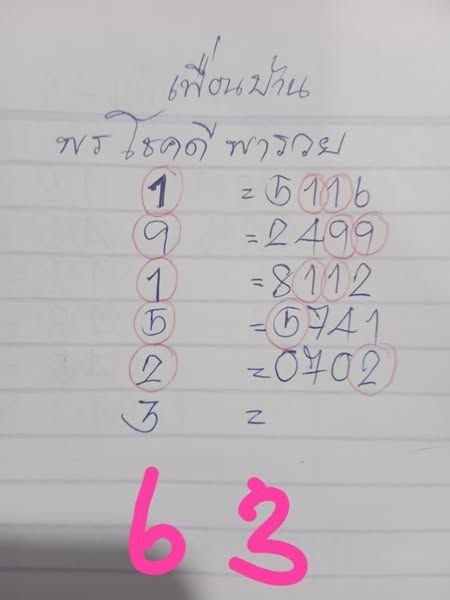 เพื่อนบ้าน
พร โชคดี พารวย
1 = 5116
9 = 2499
1 = 8112
5 = 5741
2 = 0702
3 =
6 3